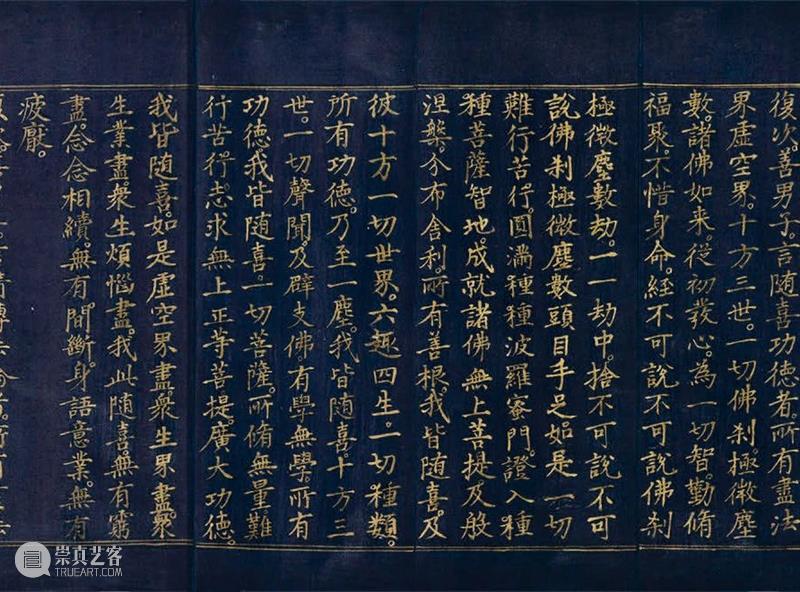 復次。善男子。言随喜功德者。所有盡法
界虛空界。十方三世。一切佛刹極微塵
數。諸佛如来從初發心。為一切智。勤脩
福聚。不惜身命。經不可說不可說佛刹
極微塵數劫。一一劫中。捨不可說不可
說佛刹極微塵數頭目手足。如是一切
難行苦行。圓滿種種波羅蜜門。證入種
種菩薩智地。成就諸佛無上菩提。及般
涅槃。分布舍利。所有善根。我皆随喜。及
彼十方一切世界。六趣四生。一切種類。
所有功德。乃至一塵。我皆随喜。十方三
世。一切聲聞。及辟支佛。有學無學。所有
功德。我皆随喜。一切菩薩。所脩無量難
行苦行。志求無上正等菩提。廣大功德。
我皆随喜。如是虛空界盡。衆生界盡。衆
生業盡。衆生煩惱盡。我此随喜。無有窮
盡。念念相續。無有間斷。身語意業。無有
疲厭。
崇真艺客
TRUEART.COM